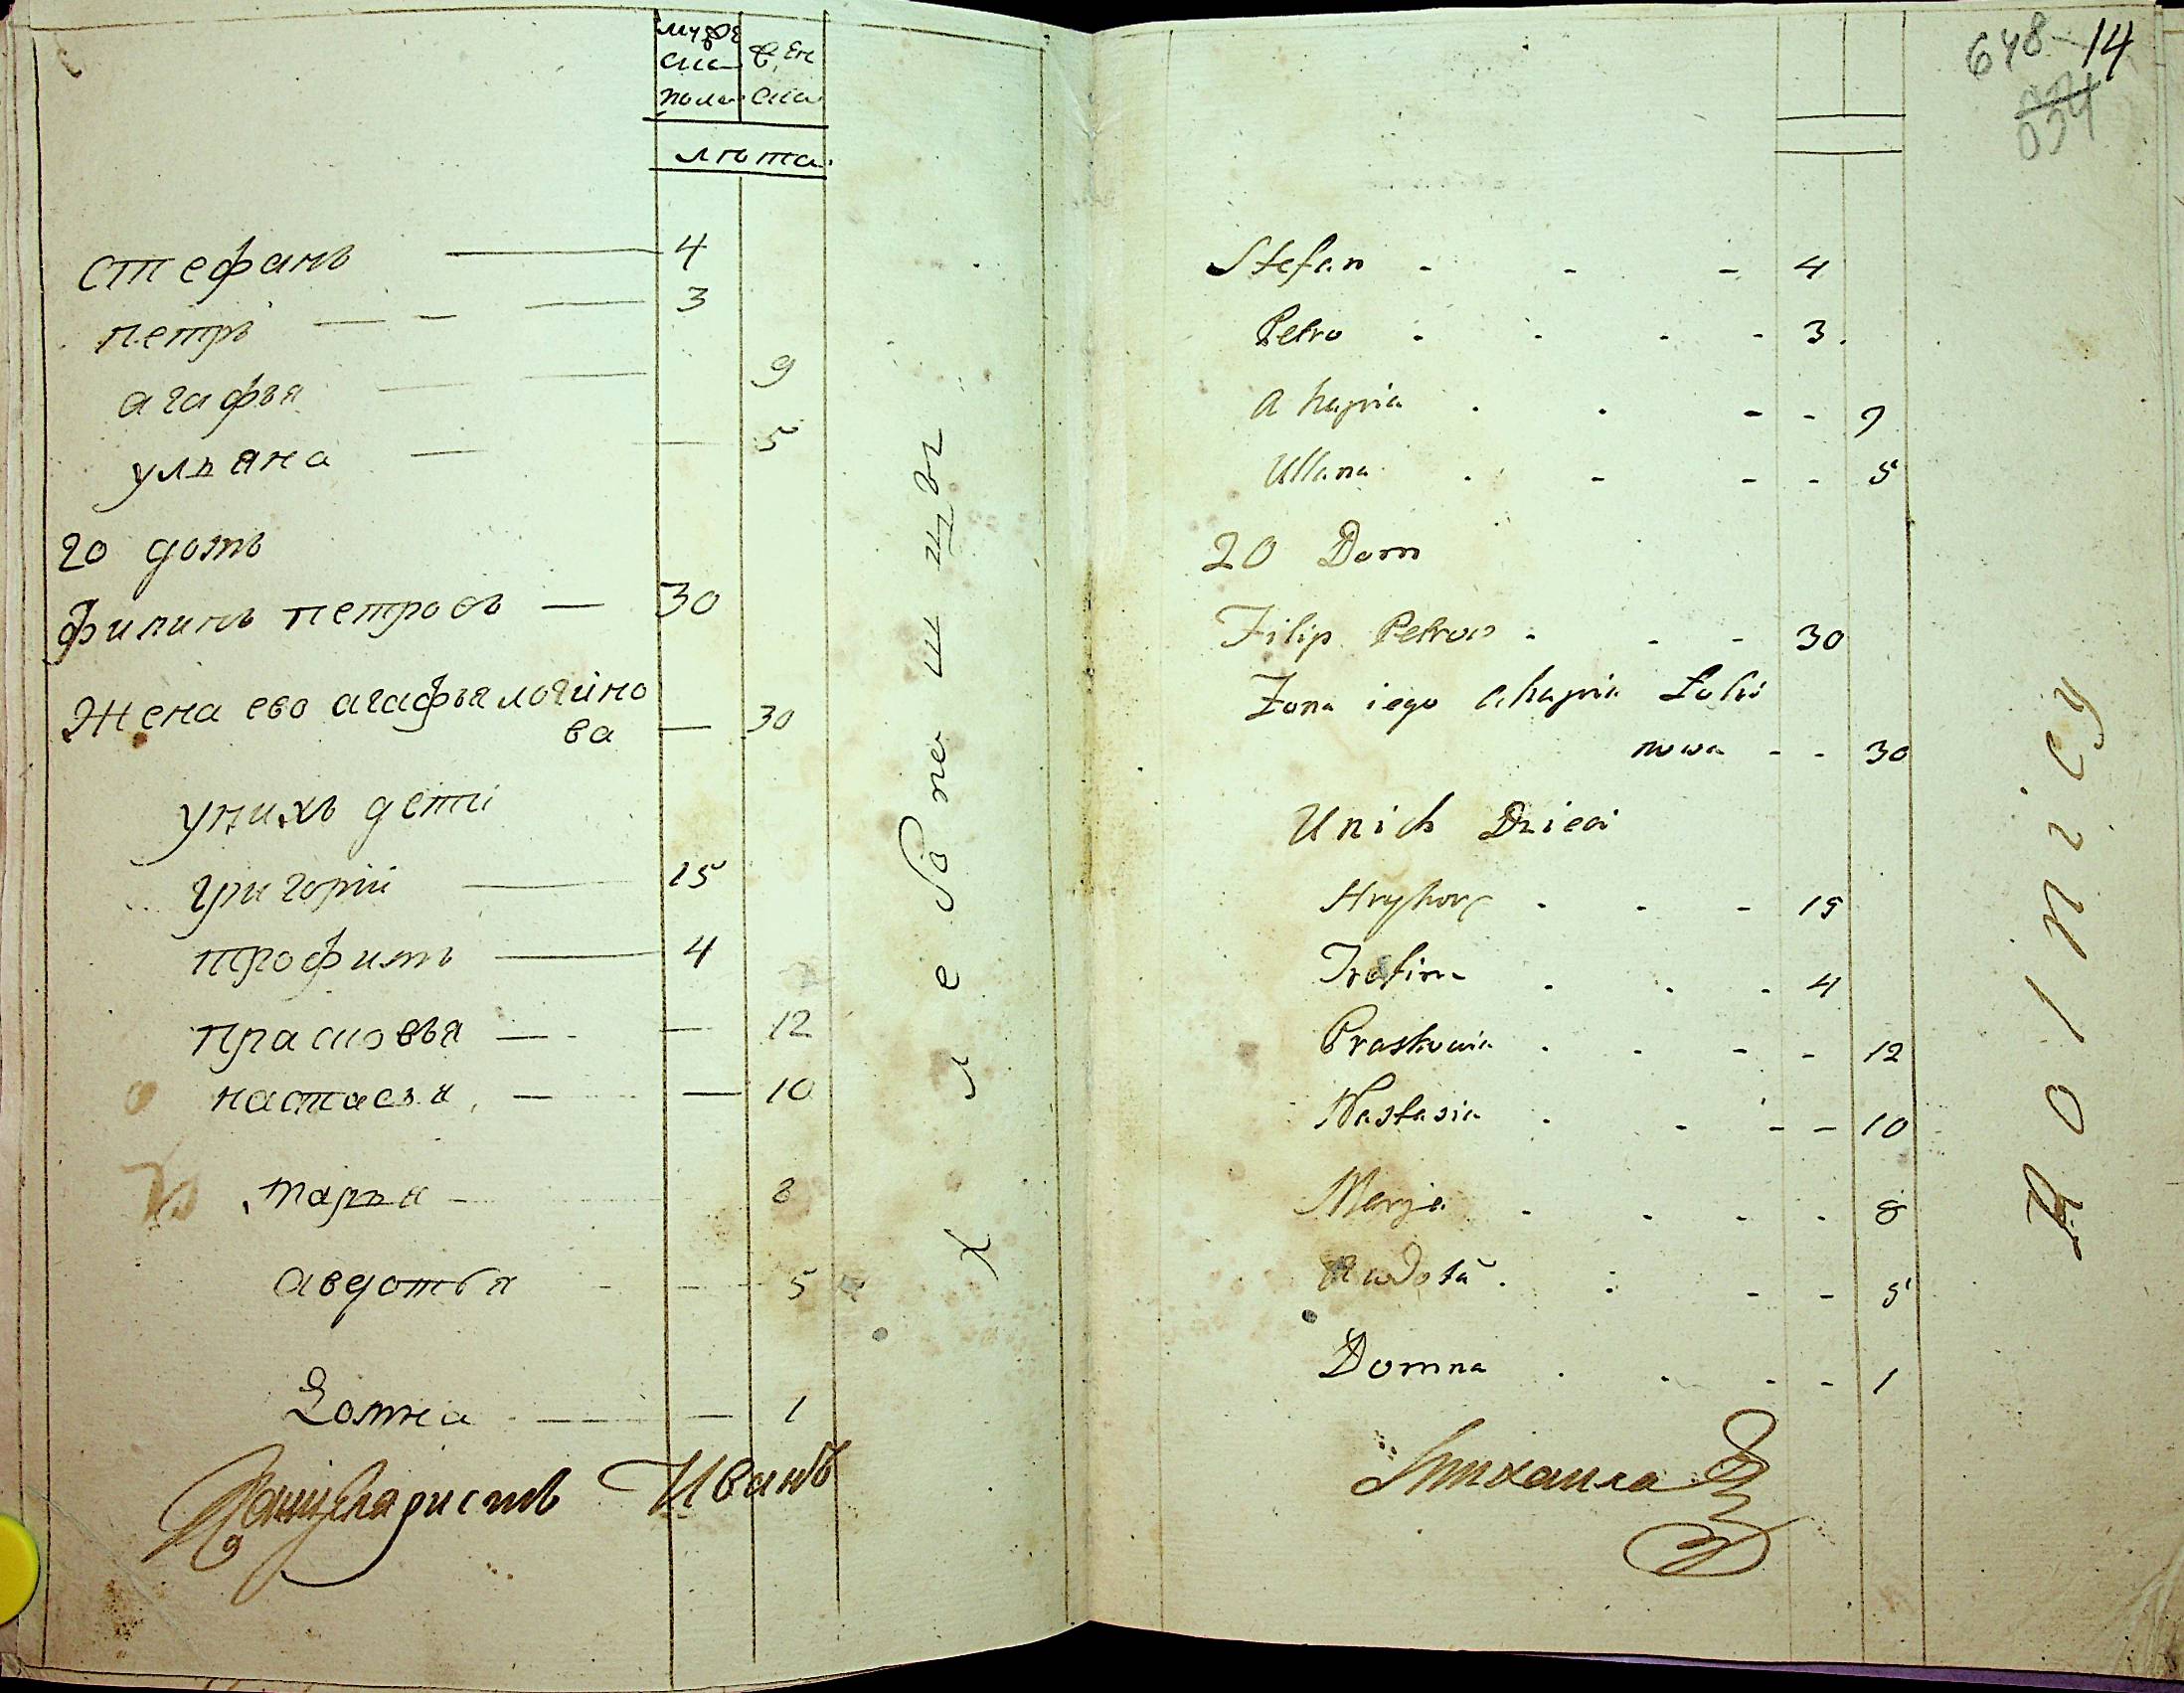 муже
ска
пола
женска
лѣта
стефанъ — 4
петръ — — — 3
агафья — — 9
ульяна — — 5
20 домъ
филипъ петровъ — 30
Жена ево агафья логино
ва — 30
унихъ дети
григорий — 15
трофимъ — 4
прасковья — — 12
настасья — — 10
марья — 8
авдотья - - 5
Домна — — 1
Канцеляристъ Иванъ
хлебопашцы
648 14
034
Stefan - - - 4
Petro - - - - 3.
Ahapia - - - - 9
Ullana - - - - 5
20 Dom
Filip Petrow - - - 30
Zona iego Ahapia
nowa - - 30
Unich Dzieci
Hryhory - - - 15
Trofim - - - 4
Praskowia - - - - 12
Nastasia - - - - 10
Marja - - - - 8
Awdota - - - - 5
Domna - - - - 1
Михаила
Rolnicy